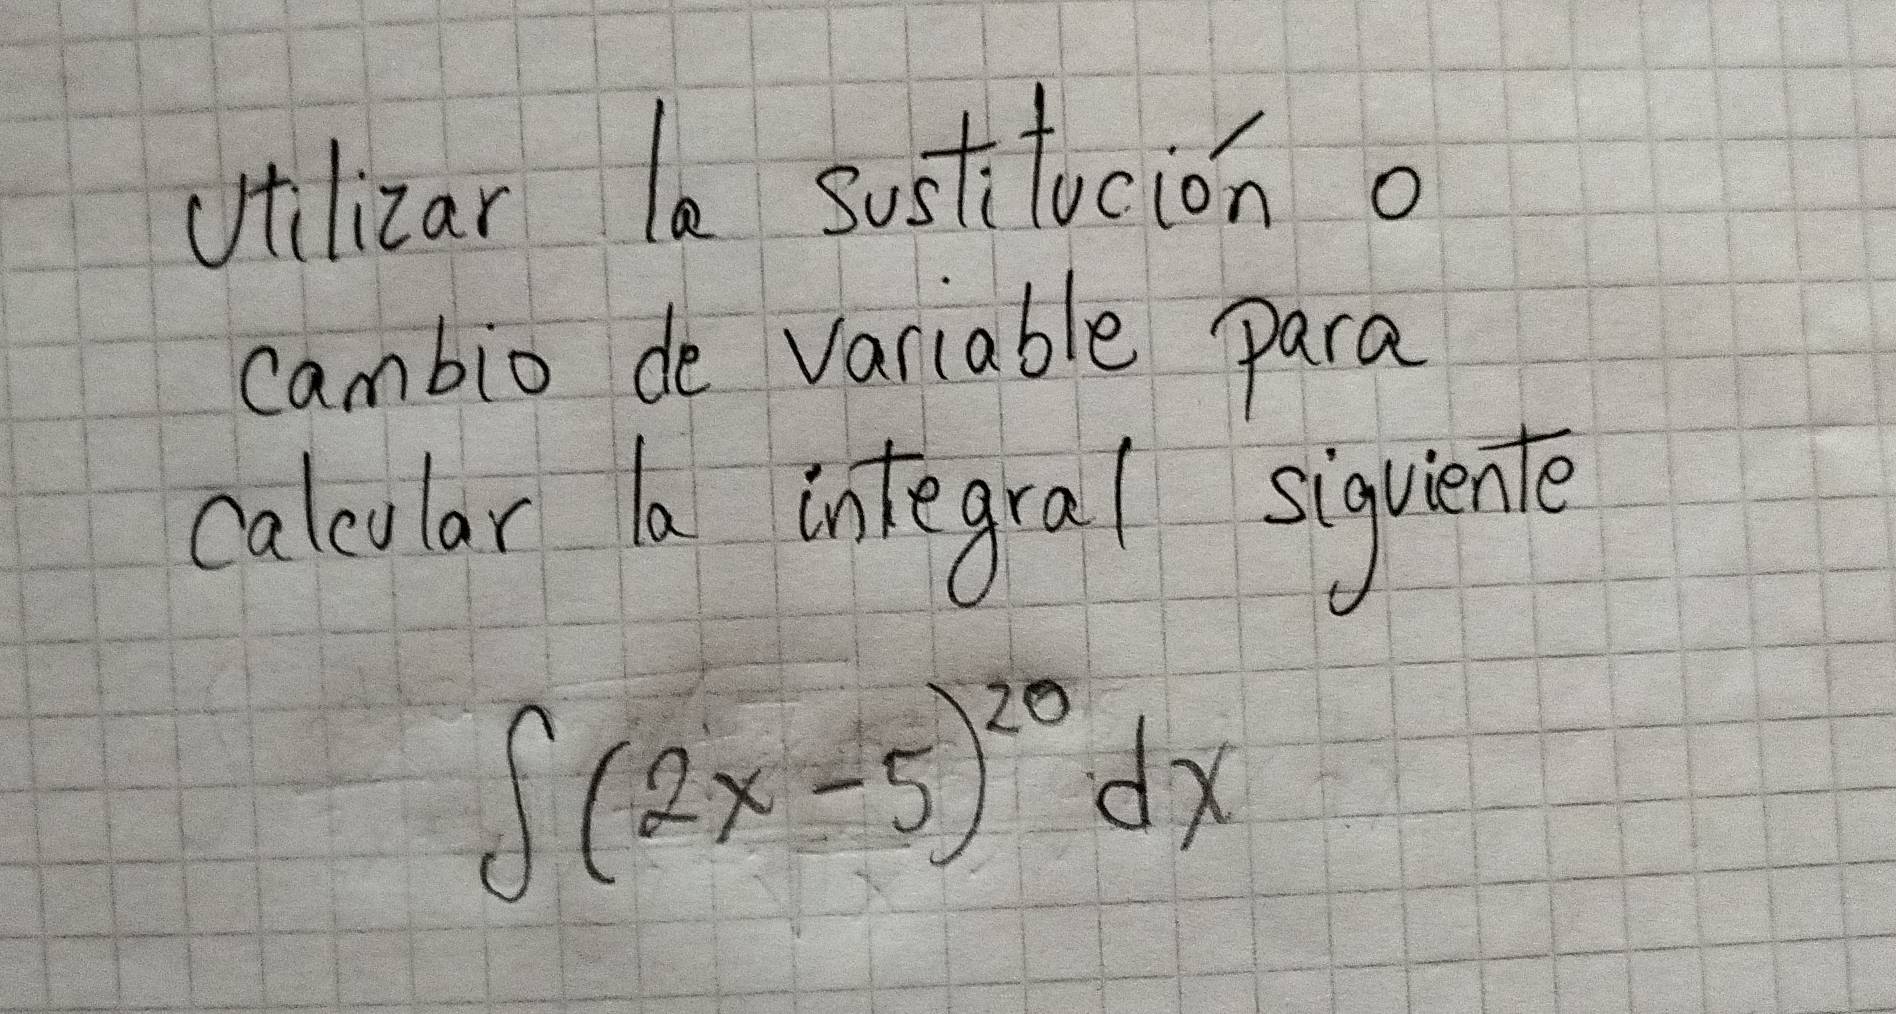 Utilizar la sustitución o
cambio de variable para
calcular la integral siguiente
∫(2x-5)²⁰ dx